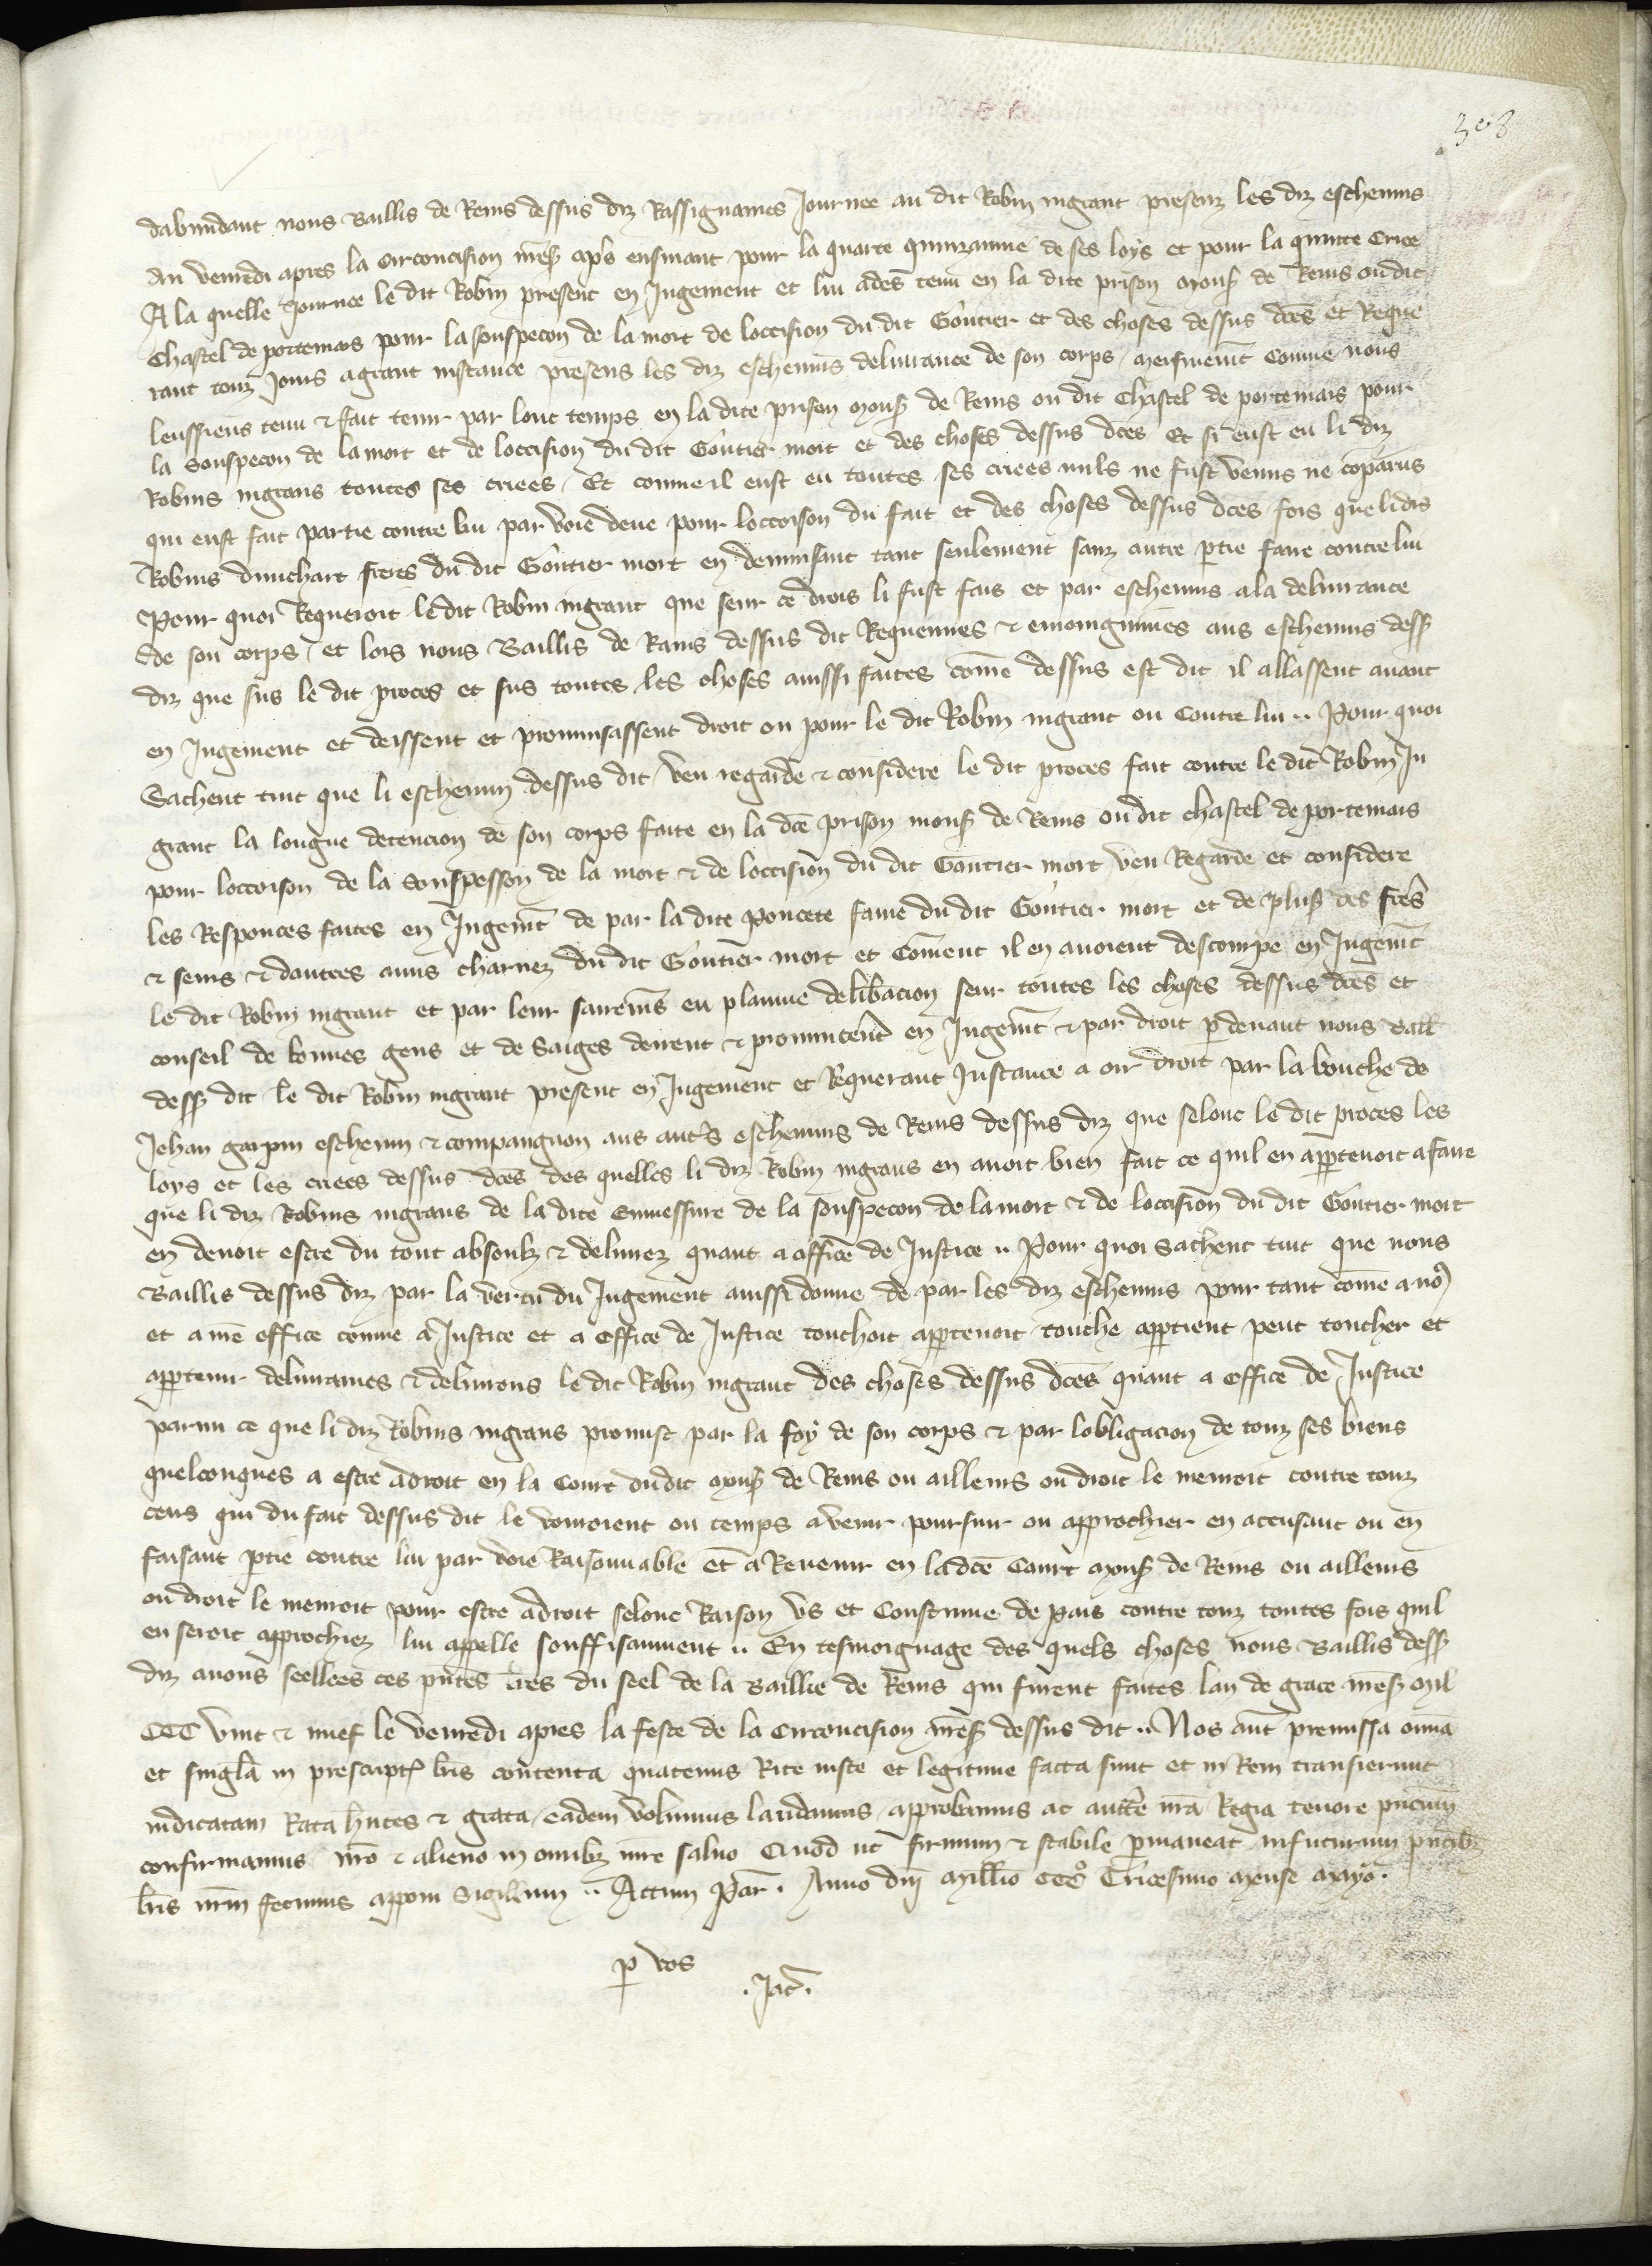 308
dabundant nous Baillis de Reins dessus diz Rassignames Journee au dit Robin ingrant presenz les diz eschevins
Au venredi apres la circoncision nreS apres ensivant pour la quarte quinzainne de ses loys et pour la quinte Criee
A la quelle Journee le dit Robin present en Jugement et lui ades tenu en la dite prison monS de Reins ou dit
Chastel de portemars pour la souspecon de la mort de loccision du dit Goutier et des choses dessus dces et Reque
rant touz jours a grant instance presens les diz eschevins delivrance de son corps meismemt Comme nous
leussiens tenu & fait tenir par lonc temps en la dite prison monS de Reins ou dit Chastel de portemars pour
la souspecon de la mort et de loccision du dit Goutier mort et des choses dessus dces Et si eust eu li diz
Robins ingrans toutes ses criees Et comme il eust eu toutes ses criees nuls ne fust venus ne coparus
qui eust fait partie contre lui par voie deue pour loccoison du fait et des choses dessus dces fors que li dis
Robins dunchart freres du dit Goutier mort en denunsant tant seulement sanz autre ptie faire contre lui
Pour quoi Requeroit le dit Robin ingrant que seur ce drois li fust fais et par eschevins a la delivrance
de son corps et lors nous Baillis de Rains dessus dit Requeimes & enioingnimes aus eschevins dessS
diz que sus le dit proces et sus toutes les choses aussi faites come dessus est dit il allassent avant
en Jugement et deissent et pronunsassent droit ou pour le dit Robin ingrant ou Contre lui .. Pour quoi
Sachent tuit que li eschevin dessus dit veu regarde & considere le dit proces fait contre le dit Robin In
grant la longue detencion de son corps faite en la dce prison monS de Reins ou dit chastel de portemars
pour loccoison de la souspesson de la mort & de loccision du dit Goutier mort veu Regarde et considere
les Responces faites en Jugemt de par la dite poncete fame du dit Goutier mort et de plusS des fres
& seurs & dautres amis charnez du dit Goutier mort et Coment il en avoient descoupe en Jugemt
le dit Robin ingrant et par leur sairemens eu plainne delibacion seur toutes les choses dessus dces et
conseil de bonnes gens et de Saiges deirent & pronuncent en Jugemt & par droit pdevant nous Ball
dessS dit le dit Robin ingrant present en Jugement et Requerant Instance a oir droit par la bouche de
Jehan grapin eschevin & compaignon aus autrs eschevins de Reins dessus diz que selonc le dit proces les
loys et les criees dessus dces des quelles li diz Robin ingrans en avoit bien fait ce quil en apptenoit a faire
que li diz Robins ingrans de la dite de la souspecon de la mort & de loccision du dit Goutier mort
en devoit estre du tout absoulz & delivrez quant a office de Justice .. Pour quoi Sachent tuit que nous
Baillis dessus diz par la vertu du Jugement aussi donne de par les diz eschevins pour tant come a nos
et a nre office comme a Justice et a office de Justice touchoit apptenoit touche apptient peut toucher et
apptenir delivrames & delivrons le dit Robin ingrant des choses dessus dces quant a office de Justice
parmi ce que li diz Robins ingrans promist par la foy de son corps & par lobligacion de touz ses biens
quelconques a estre adroit en la Court du dit monS de Reins ou ailleurs ou droit le menroit contre touz
ceus qui du fait dessus dit le vouroient ou temps avenir poursuir ou approchier en accusant ou en
faisant ptie contre lui par voie Raisonnable et a Revenir en la dce Court monS de Reins ou ailleurs
ou droit le menroit pour estre adroit selonc Raison us et Coustume de pais contre touz toutes fois quil
en seroit approchiez lui appelle souffisanment .. En tesmoignage des quels choses nous Baillis dessS
diz avons seellees ces pntes lres du seel de la Baillie de Reins qui furent faites lan de grace nreS mil
CCC vint & nuef le venredi apres la feste de la Circoncision nreS dessus dit .. Nos aut premissa omia
et singla in prescriptis lris contenta quatenus Rite iuste et legitime facta sunt et in Rem transierunt
iudicatam Rata hntes & grata eadem volumus laudamus approbamus ac auctte nra Regia tenore pncium
confirmamus nro & alieno in omibz iure salvo Quod ut firmum & stabile pmaneat infuturum pntibz
lris nrm fecimus apponi Sigillum .. Actum Par. Anno dni Millio CCCo Tricesimo mense mayo.
p vos
. Jac .